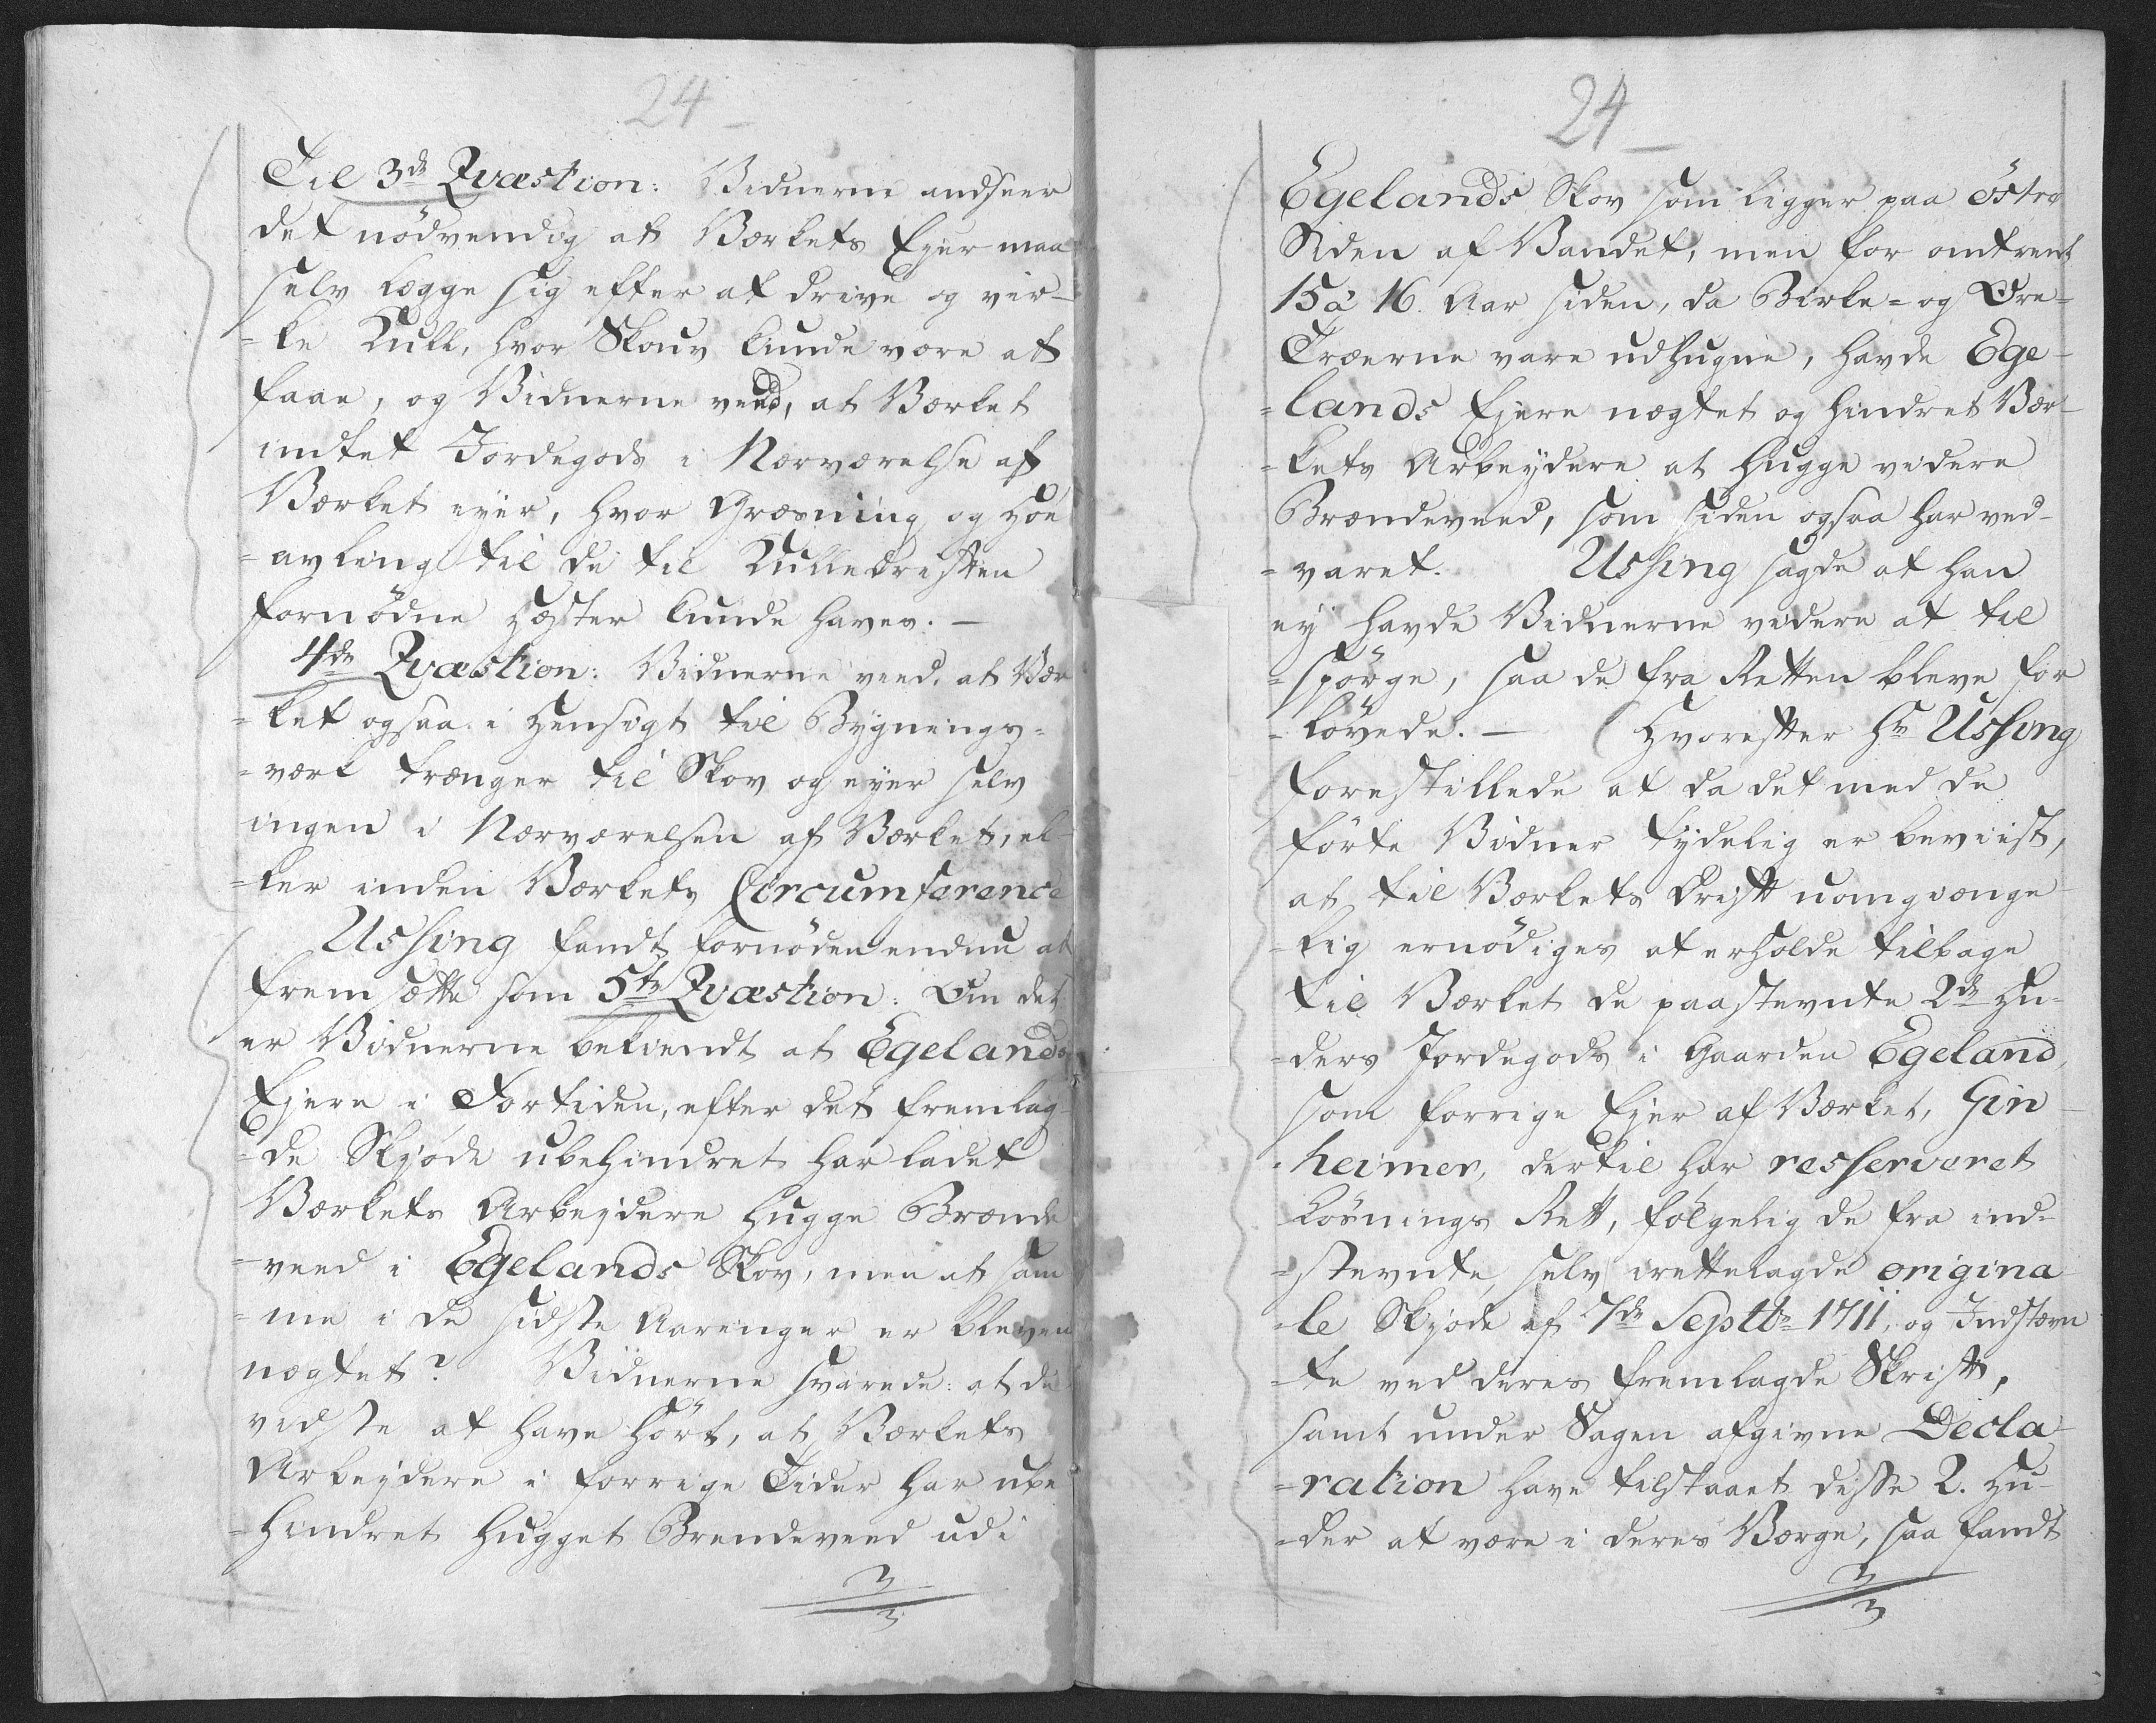 24
Til 3de Qvæstion: Vidnerne andseer
det nödvendig at Værkets Eyer maa
selv lægge sig efter at drive og vir-
-ke Kull, hvor Skouv kunde være at
faae, og Vidnerne veed, at Værket
intet Jordegods i Nærværelse af
Værket eyer, hvor Græsning og Höe
-avling til de til Kulledriften
fornödne Hæster kunde haves. —
4de Qvæstion: Vidnerne veed, at Vær
-ket ogsaa i Hensigt til Bygnings-
-værk trænger til Skov og eyer selv
ingen i Nærværelsen af Værket, el-
-ler inden Værkets Circumference
Ussing fandt fornöden endnu at
fremsætte som 5te Qvæstion: Om det
er Vidnerne bekiendt at Egelands
Ejere i Fortiden, efter det fremlag-
-de Skjöde ubehindret har ladet
Værkets Arbejdere hugge Brænde
-veed i Egelands Skov, men at sam
-me i de sidste Aaringer er bleven
nægtet? Vidnerne svarede: at de
vidste at have hört, at Værkets
Arbejdere i forrige Tider har ube
-hindret hugget Brendeveed udi
24
Egelands Skov som ligger paa Östre
Siden af Vandet, men for omtrent
15 à 16. Aar siden, da Birke- og Ore-
Træerne vare udhugne, havde Ege-
-lands Ejere nægtet og hindret Vær-
-kets Arbeydere at hugge videre
Brændeveed, som siden ogsaa har ved-
-varet. Ussing sagde at han
ey havde Vidnerne videre at til
-spörge, saa de fra Retten bleve for
-lövede. — Hvorefter Hr Ussing
forestillede at da det med de
förte Vidner tydelig er beviist,
at til Værkets Drift uomgienge
-lig ernödiges at erholde tilbage
til Værket de paastevnte 2de Hu-
-ders Jordegods i Gaarden Egeland,
som forrige Ejer af Værket, Gin-
-heimer, dertil har resserveret
Lösnings Rett, fölgelig de fra ind-
-stevnte selv irettelagde origina
-le Skjöde af 7de Septbr 1711, og Indstævn
-te ved deres fremlagde Skrift,
samt under Sagen afgivne Decla-
-ration have tilstaaet disse 2. Hu-
-der at være i deres Værge, saa fandt